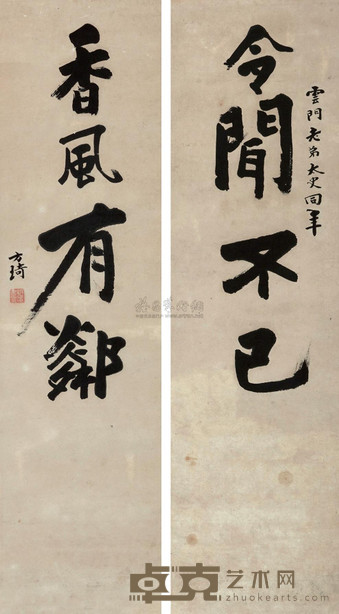 雲門老弟太史同年
令聞不已
香風有鄰
方琦
卓克艺术网
zhuokearts.com